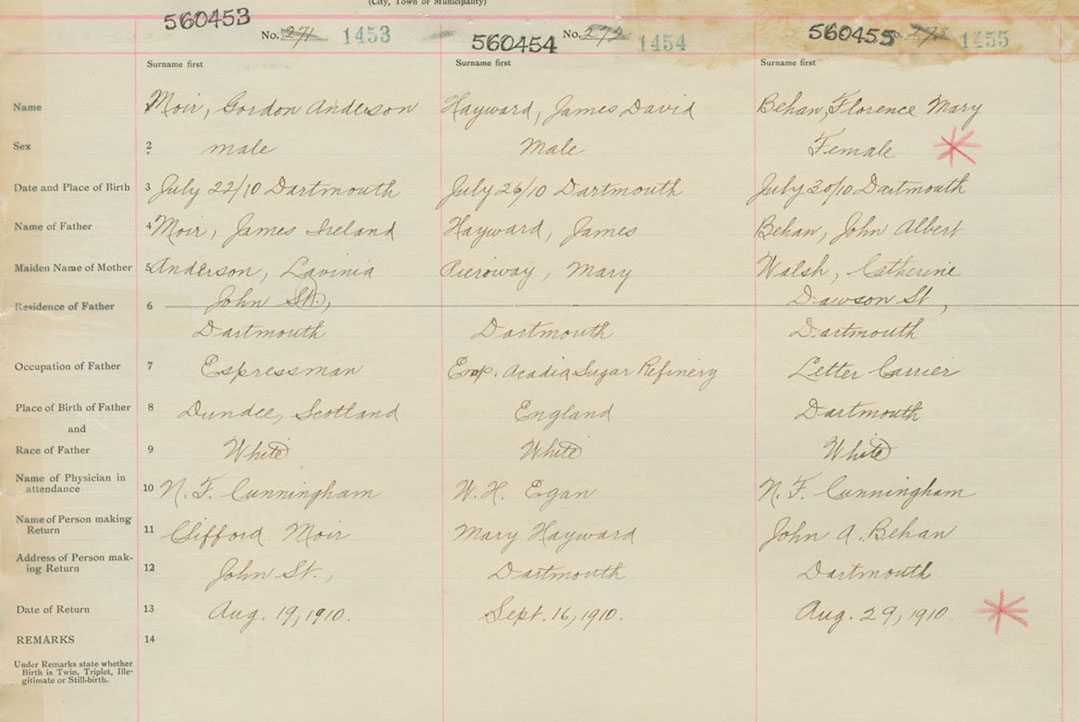 (City, Town or Municipality)
560453 No. 271 1453
560454 No. 272 1454
560455 No. 1455
Surname first Surname first Surname first
Name 1 Moir, Gordon Anderson Hayward, James David Behan, Florence Mary
Sex 2 male Male Female
Date and Place of Birth 3 July 22/10 Dartmouth July 26/10 Dartmouth July 30/10 Dartmouth
Name of Father 4 Moir, James Ireland Hayward, James Behan, John Albert
Maiden Name of Mother 5 Anderson, Lavinia Pieroway, Mary Walsh, Catherine
Residence of Father 6 John St., Dawson St,
Dartmouth Dartmouth Dartmouth
Occupation of Father 7 Espressman Emp. Acadia Sugar Refinery Letter Carrier
Place of Birth of Father 8 Dundee, Scotland England Dartmouth
and
Race of Father 9 White White White
Name of Physician in
attendance 10 N. F. Cunningham W. H. Egan N. F. Cunningham
Name of Person making
Return 11 Clifford Moir Mary Hayward John A. Behan
Address of Person mak-
ing Return 12 John St., Dartmouth Dartmouth
Date of Return 13 Aug. 19, 1910. Sept. 16, 1910. Aug. 29, 1910
REMARKS 14
Under Remarks state whether
Birth is Twin, Triplet, Ille-
gitimate or Still-birth.